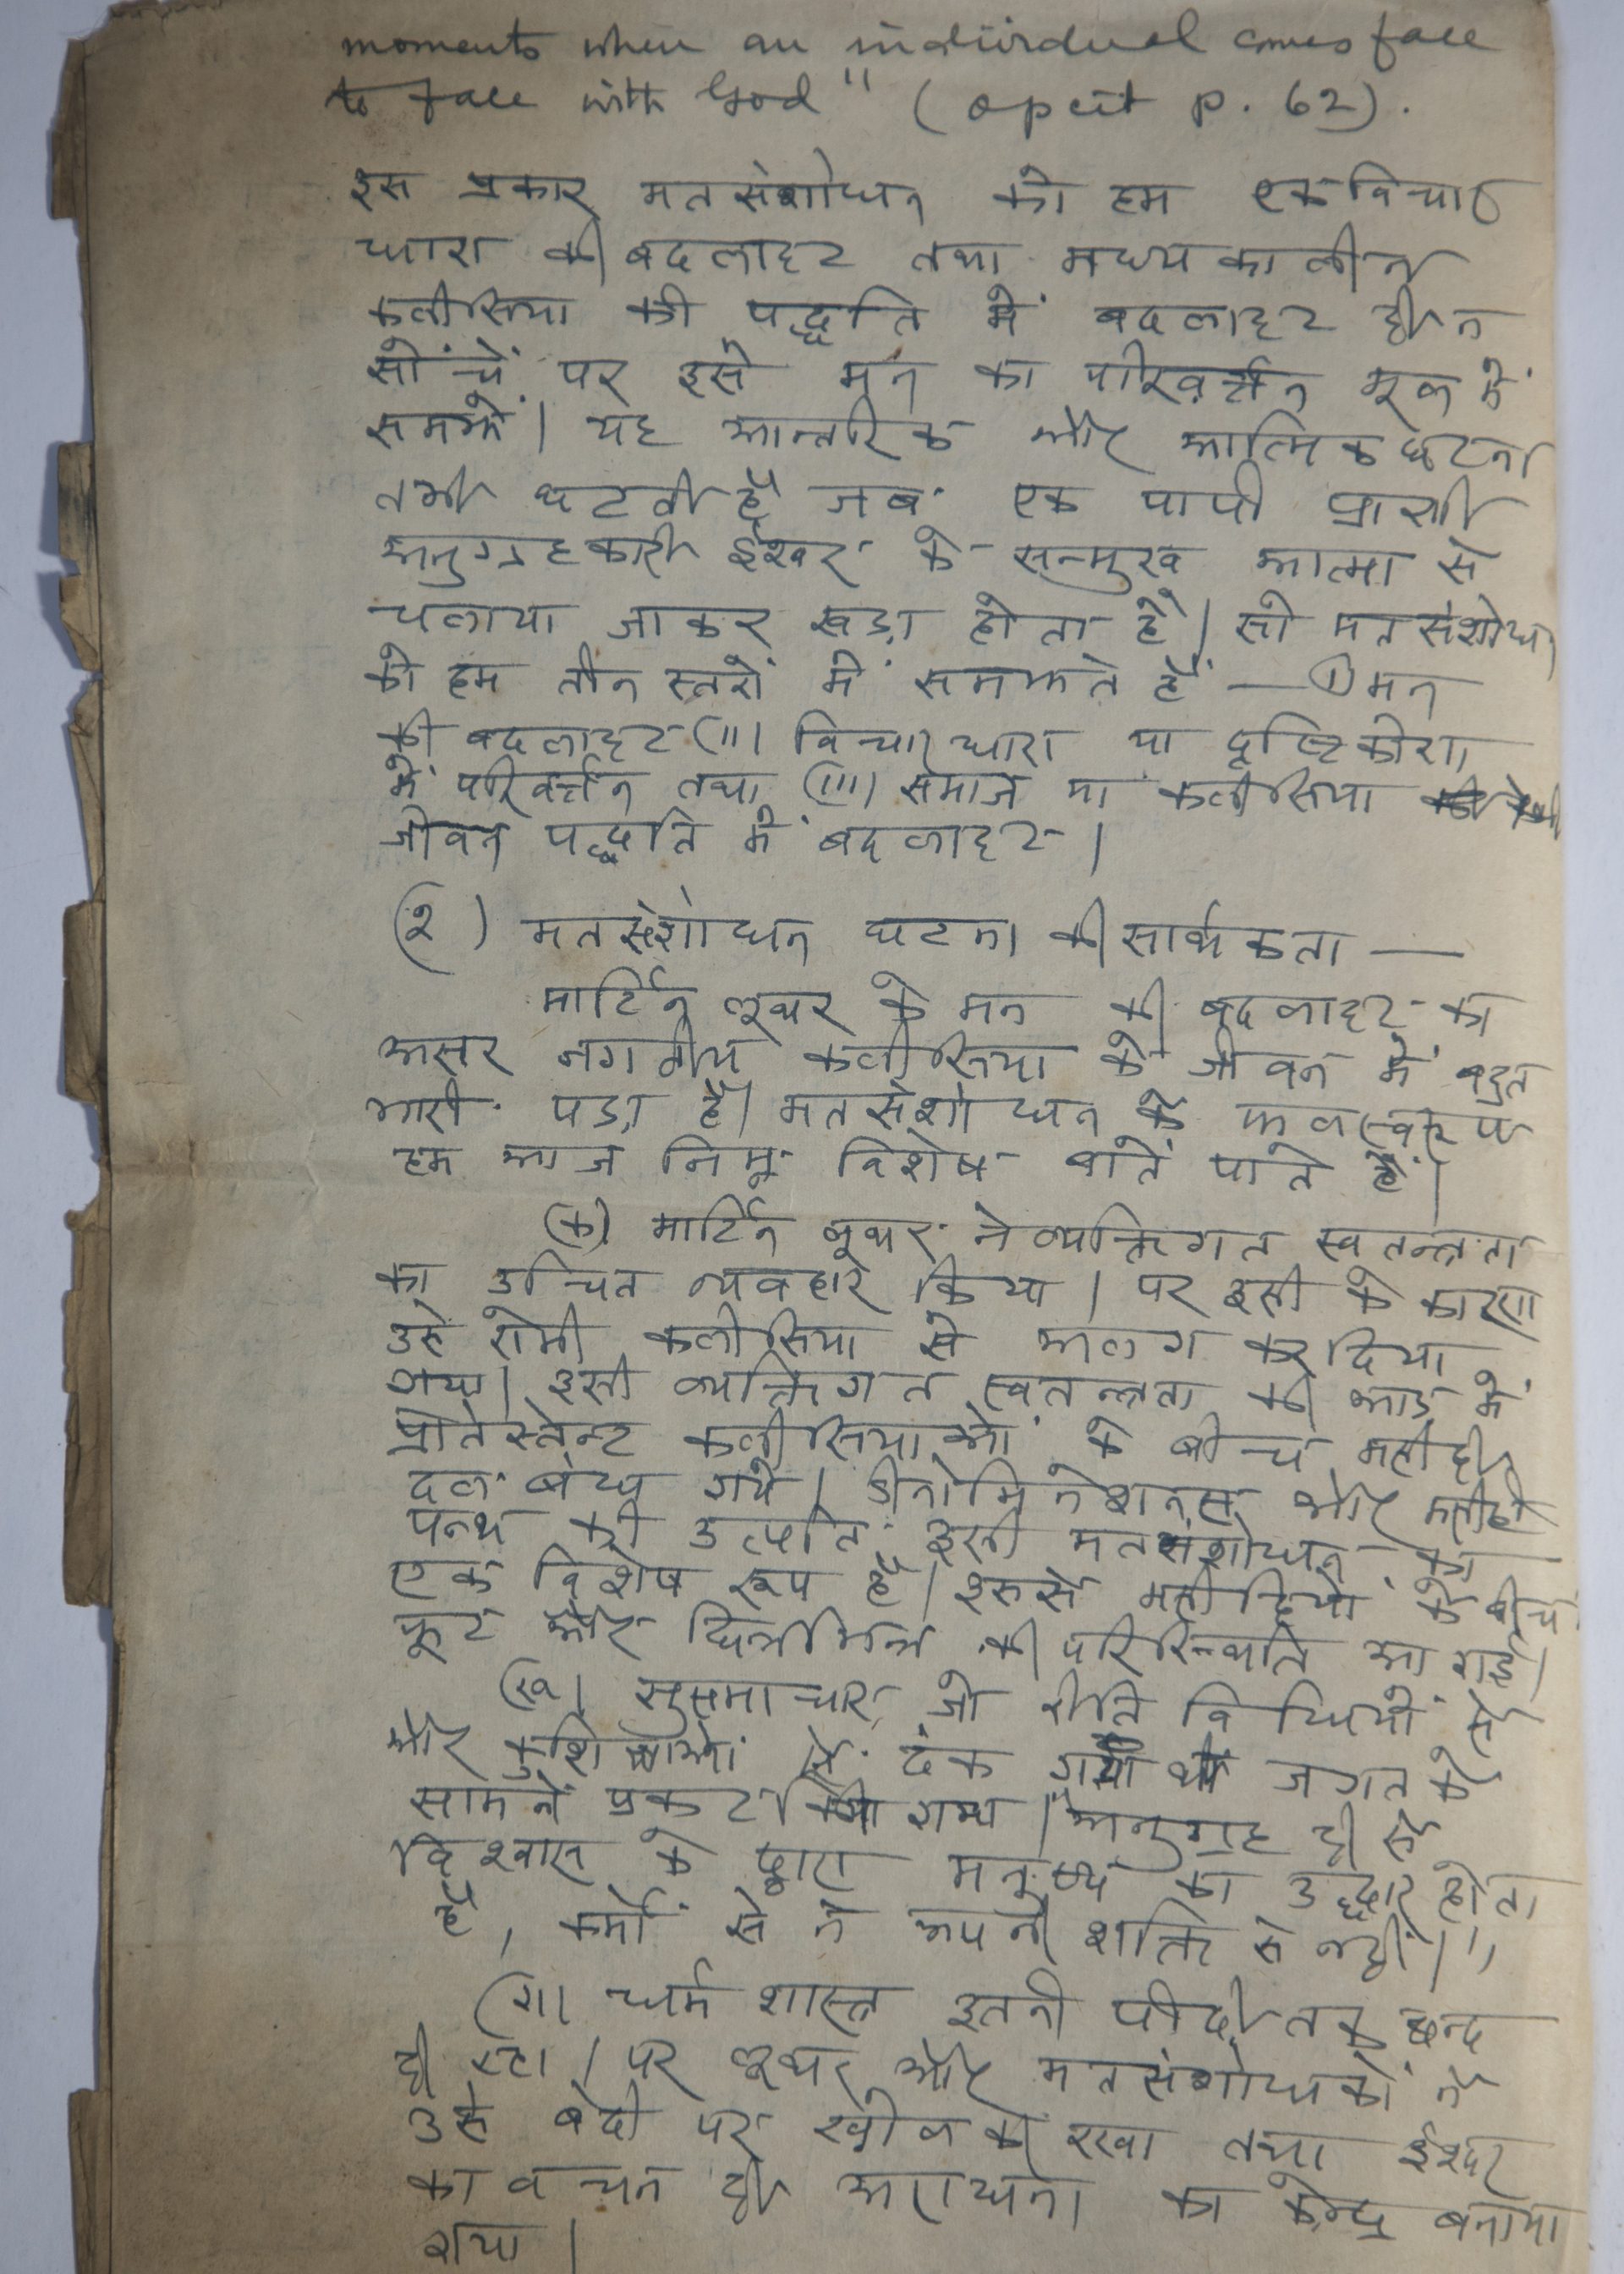 moments when an individual comes face
to face with God" (op cit p. 62).
इस प्रकार मतसंशोधन को हम एक विचार
धारा की बदलाहट तथा मध्यकालीन
कलीसिया की पद्धति में बदलाहट ही न
सोंचें पर इसे मन का परिवर्त्तन मूल में
समझें। यह आन्तरिक और आत्मिक घटना
तभी घटती है जब एक पापी प्राणी
अनुग्रहकारी ईश्वर के सन्मुख आत्मा से
चलाया जाकर खड़ा होता है। सो मतसंशोधन
को हम तीन स्तरों में समझते हैं — (i) मन
की बदलाहट (ii) विचारधारा या दृष्टिकोण
में परिवर्त्तन तथा (iii) समाज या कलीसिया की
जीवन पद्धति में बदलाहट।
(२) मतसंशोधन घटना की सार्थकता —
मार्टिन लूथर के मन की बदलाहट का
असर जगतीय कलीसिया के जीवन में बहुत
भारी पड़ा है। मतसंशोधन के फलस्वरूप
हम आज निम्न विशेष बातें पाते हैं।
(क) मार्टिन लूथर ने व्यक्तिगत स्वतन्त्रता
का उचित व्यवहार किया। पर इसी के कारण
उसे रोमी कलीसिया से अलग कर दिया
गया। इसी व्यक्तिगत स्वतन्त्रता की आड़ में
प्रोतेस्तेन्ट कलीसियाओं के बीच मसीही
दल बंध गये। डीनोमिनेशनस और मसीही
पन्थ की उत्पति इसी मतसंशोधन का
एक विशेष रूप है। इससे मसीहियों के बीच
फूट और छिन्नभिन्न की परिस्थिति आ गई।
(ख) सुसमाचार, जो रीति विधियों से
और कुशिक्षाओं से ढंक गया था जगत के
सामने प्रकट किया गया। "अनुग्रह ही से
विश्वास के द्वारा मनुष्य का उद्धार होता
है, कर्मों से न अपनी शक्ति से नहीं।"
(ग) धर्म शास्त्र इतनी पीढ़ी तक बन्द
ही रहा। पर लूथर और मतसंशोधकों ने
उसे बेदी पर खोल की रखा तथा ईश्वर
का वचन ही आराधना का केन्द्र बनाया
गया।